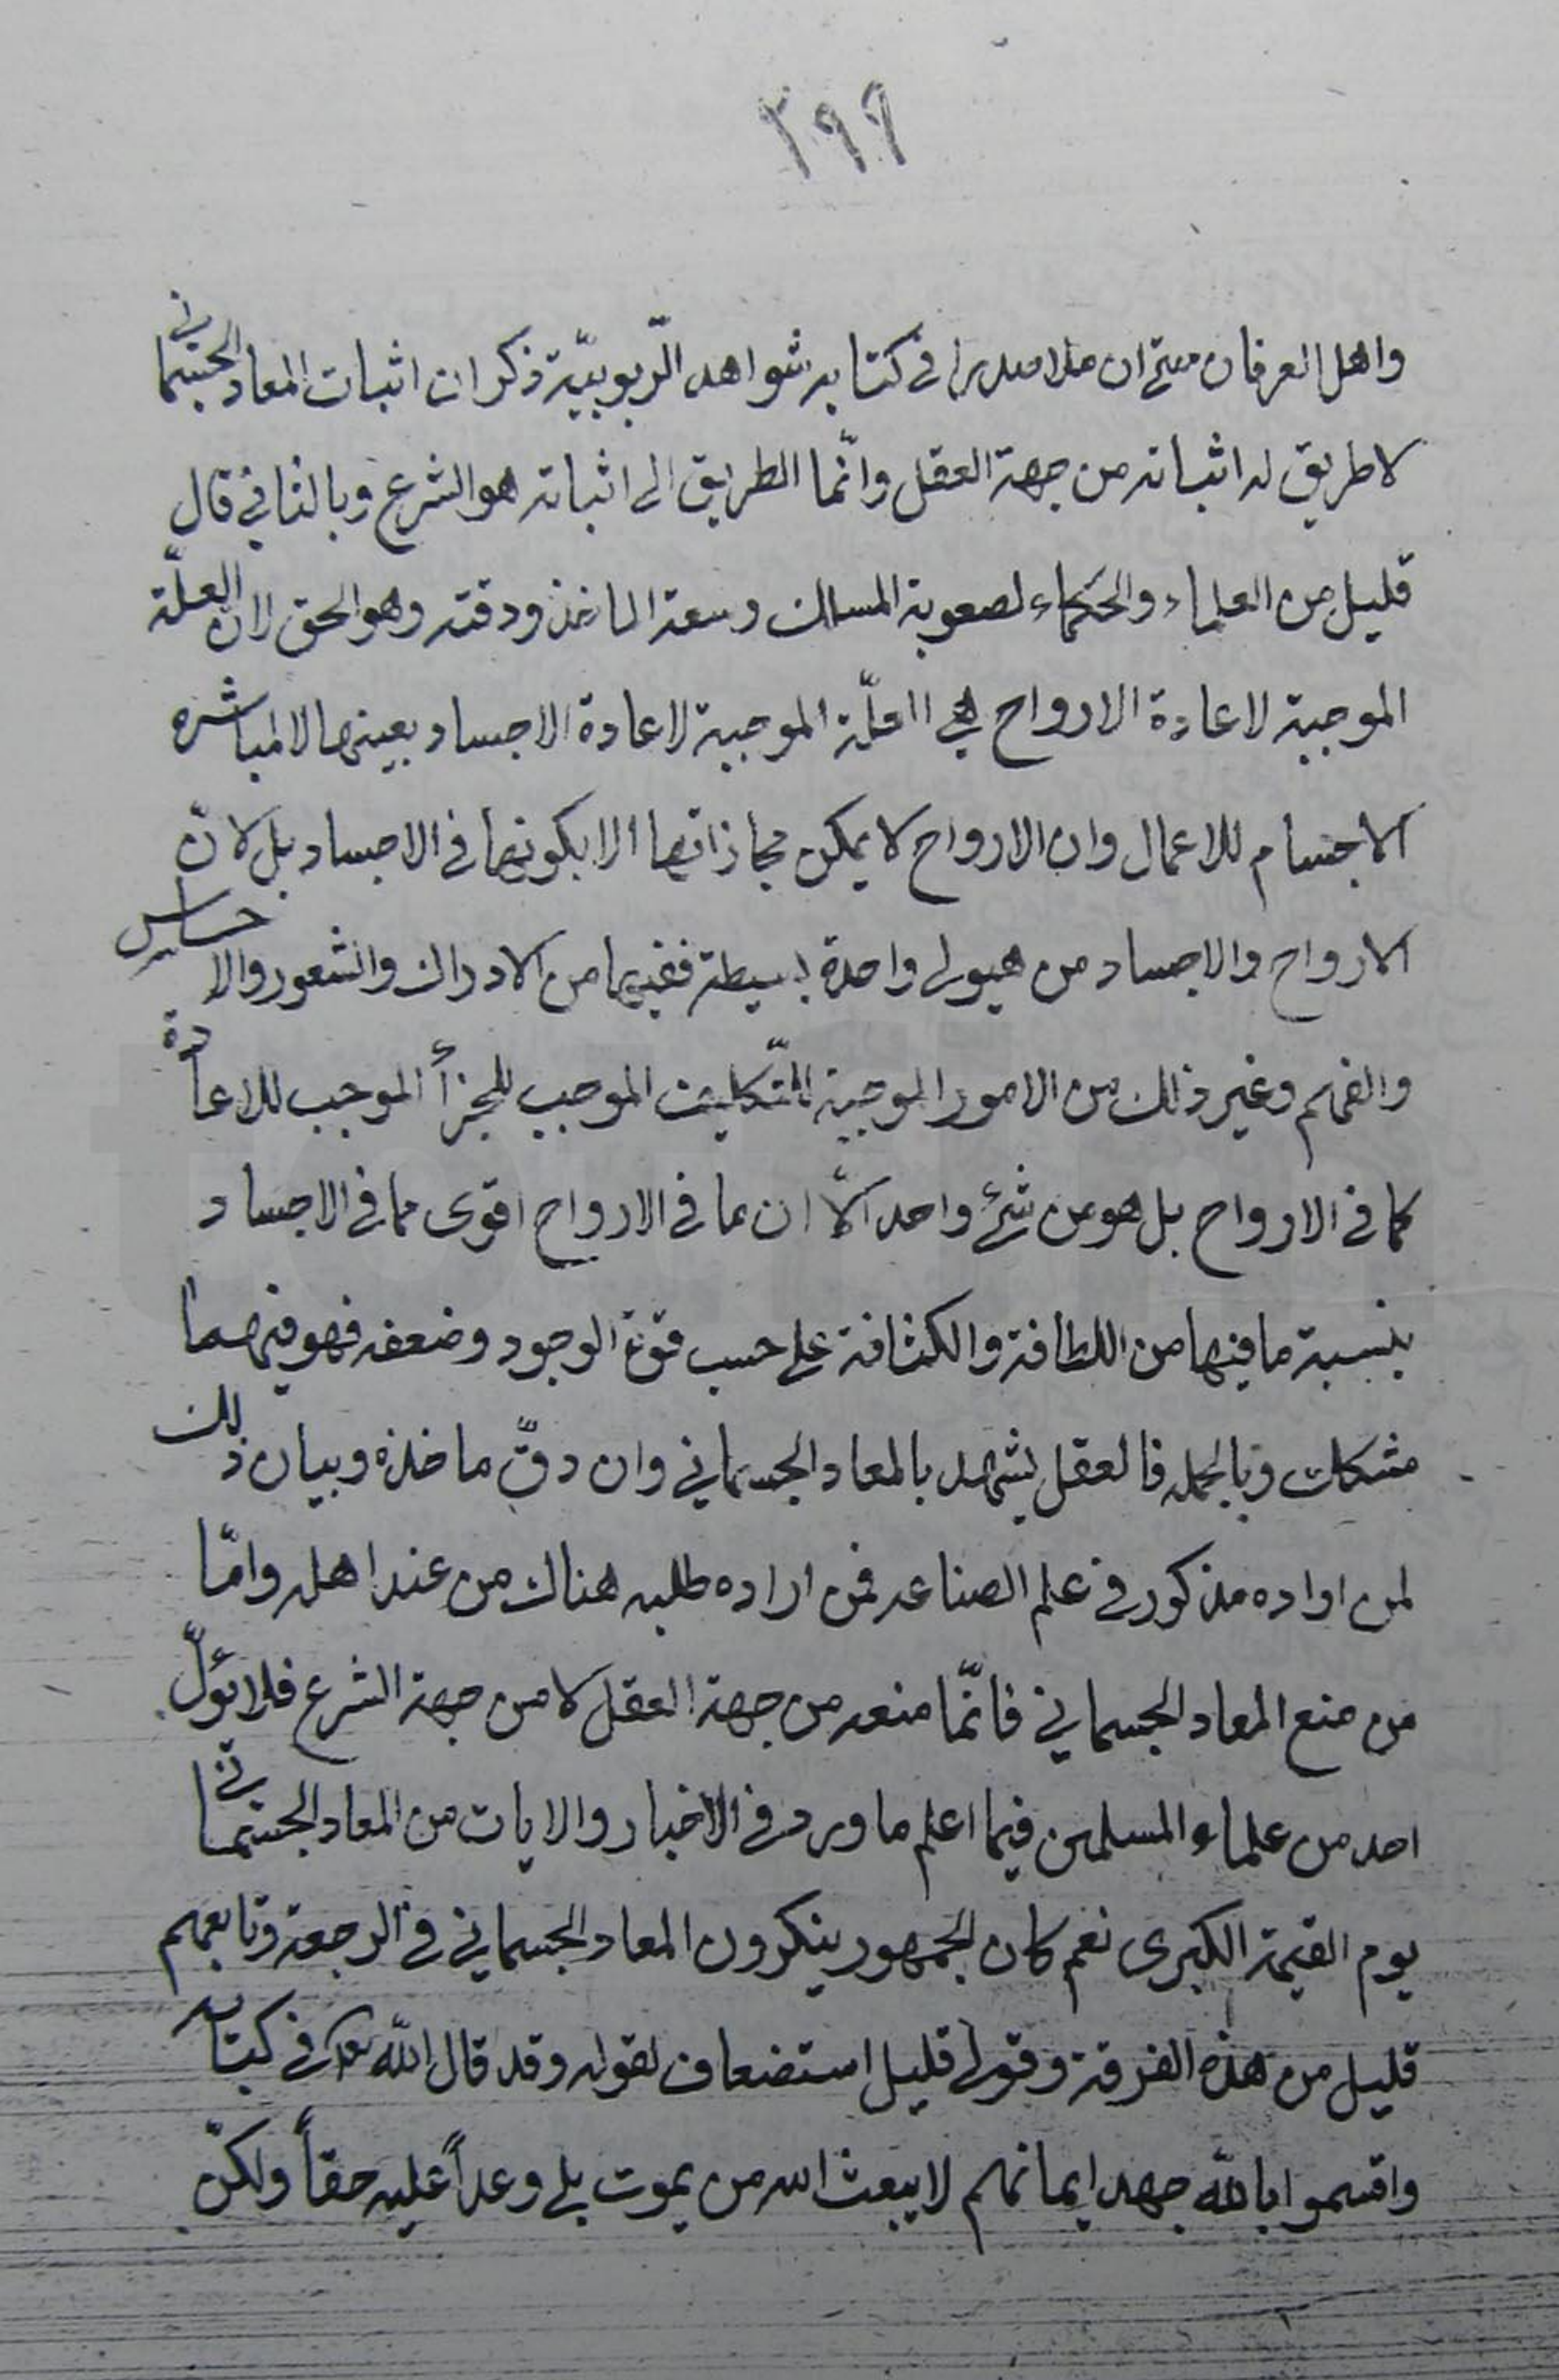 ٢٩٩
واهل العرفان حتى ان ملا صدرا في كتابه شواهد الرّبوبيّة ذكر ان اثبات المعاد الجسماني
لا طريق له اثباته من جهة العقل وانّما الطريق الى اثباته هو الشرع وبالثاني قال
قليل من العلماء والحكماء لصعوبة المسلك وسعة الماخذ ودقته وهو الحق لان العلّة
الموجبة لاعادة الارواح هي العلّة الموجبة لاعادة الاجساد بعينها لا لمباشرة
الاجسام للاعمال وان الارواح لا يمكن مجازاتها الا بكونها في الاجساد بل لانّ
الارواح والاجساد من هيولى واحدة بسيطة ففيهما من الادراك والشعور والاحساس
والفهم وغير ذلك من الامور الموجبة للتّكليف الموجب للجزأ الموجب للاعادة
كما في الارواح بل هو من شئ واحد الّا ان ما في الارواح اقوى مما في الاجساد
بنسبة ما فيها من اللطافة والكثافة على حسب قوة الوجود وضعفه فهو فيهما
مشكك وبالجمله فالعقل يشهد بالمعاد الجسماني وان دقّ ماخذه وبيان ذلك
لمن اراده مذكور في علم الصناعه فمن اراده طلبه هناك من عند اهله وامّا
من منع المعاد الجسماني فانّما منعه من جهة العقل لا من جهة الشرع فلا يؤلّ
احد من علماء المسلمين فيما اعلم ما ورد في الاخبار والايات من المعاد الجسماني
يوم القيمة الكبرى نعم كان الجمهور ينكرون المعاد الجسماني في الرجعة وتابعهم
قليل من هذه الفرقة وقولى قليل استضعاف لقوله وقد قال اللّه تعالى في كتابه
واقسموا باللّه جهد ايمانهم لا يبعث الله من يموت بلى وعداً عليه حقاً ولكنّ